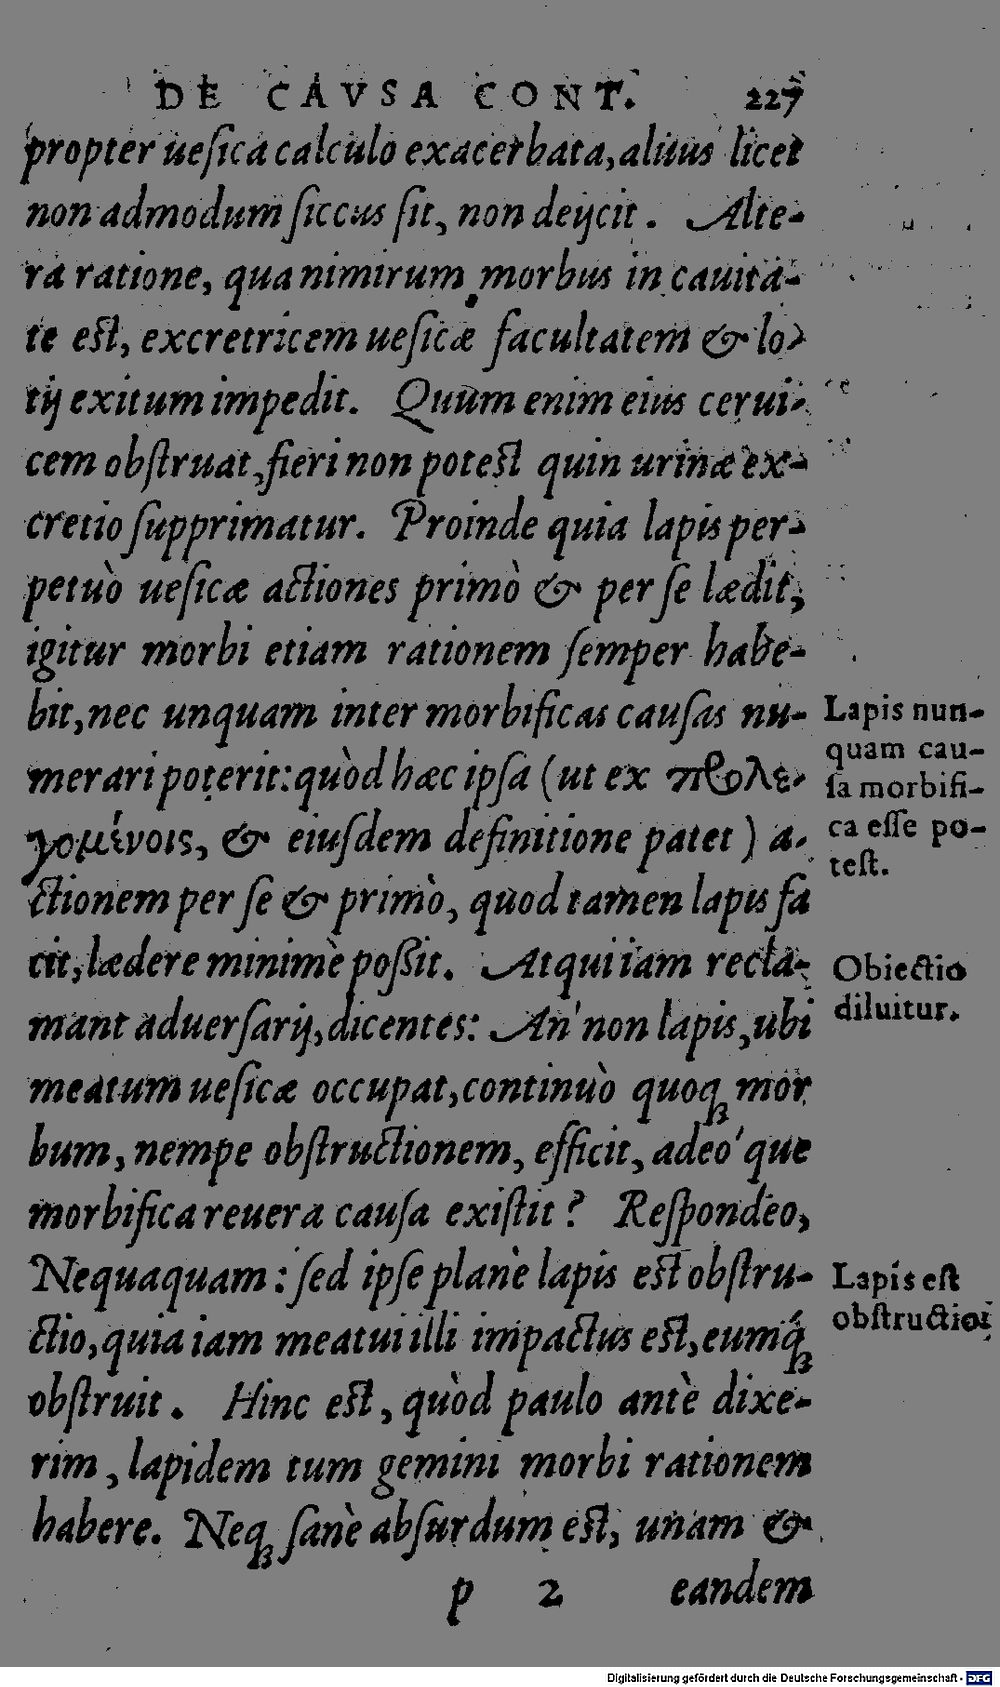 DE CAVSA CONT. 227
propter uesica calculo exacerbata, aluus licet
non admodum siccus sit, non deijcit. Alte-
ra ratione, qua nimirum morbus in cauita-
te est, excretricem uesicæ facultatem & lo-
tij exitum impedit. Quum enim eius cerui-
cem obstruat, fieri non potest quin urinæ ex-
cretio supprimatur. Proinde quia lapis per-
petuò uesicæ actiones primò & per se lædit,
igitur morbi etiam rationem semper habe-
bit, nec unquam inter morbificas causas nu-
merari poterit: quòd hæc ipsa (ut ex προλε-
γομένοις, & eiusdem definitione patet) a-
ctionem per se & primò, quod tamen lapis fa
cit, lædere minimè poßit. Atqui iam recla-
mant aduersarij, dicentes: An' non lapis, ubi
meatum uesicæ occupat, continuò quoq; mor
bum, nempe obstructionem, efficit, adeo'que
morbifica reuera causa existit? Respondeo,
Nequaquam: sed ipse planè lapis est obstru-
ctio, quia iam meatui illi impactus est, eumq́;
obstruit. Hinc est, quòd paulo antè dixe-
rim, lapidem tum gemini morbi rationem
habere. Neq; sanè absurdum est, unam &
p 2 eandem
Lapis nun-
quam cau-
sa morbifi-
ca esse po-
test.
Obiectio
diluitur.
Lapis est
obstructio
Digitalisierung gefördert durch die Deutsche Forschungsgemeinschaft - DFG